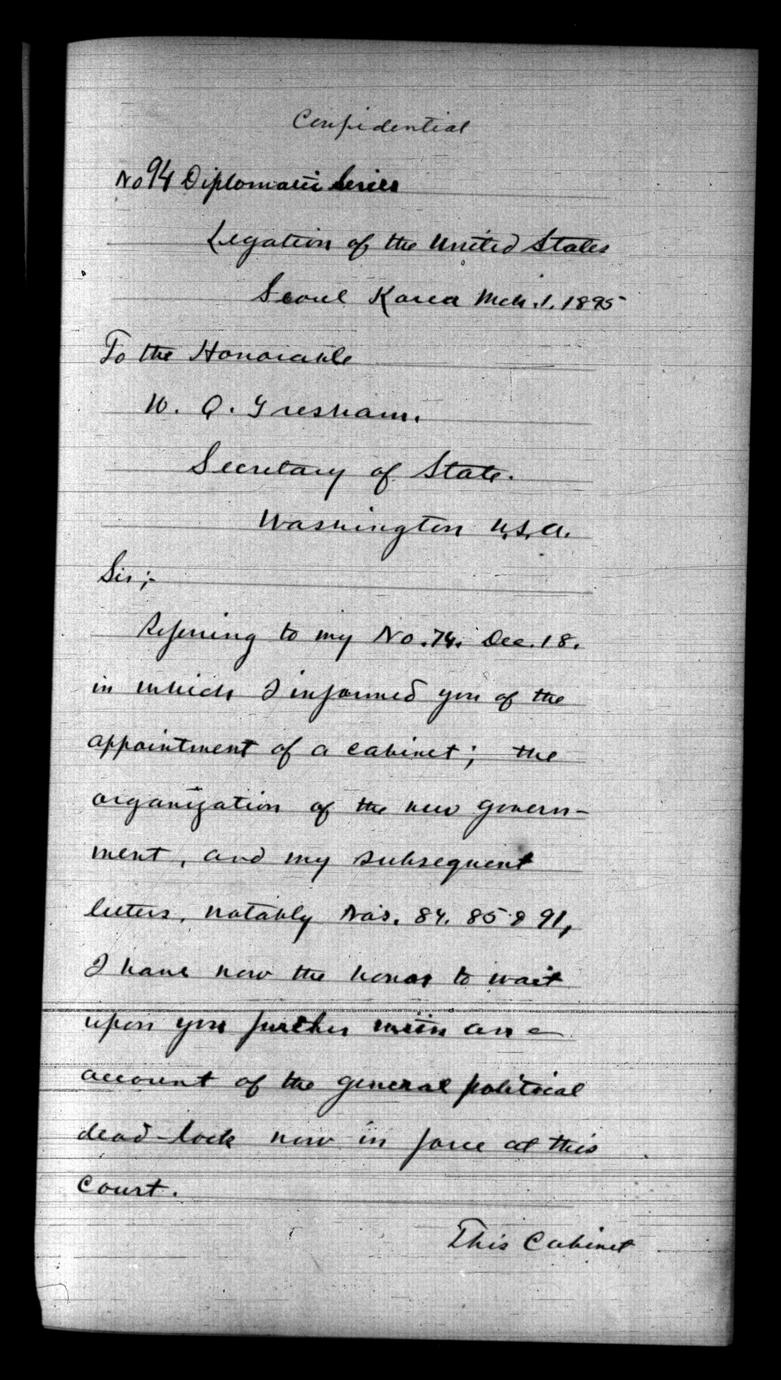 Confidential
No 94 Diplomatic Series
Legation of the United States
Seoul Korea Mch. 1. 1895
To the Honorable
W. Q. Gresham.
Secretary of State.
Washington U.S.A.
Sir;-
Referring to my No. 74. Dec. 18.
in which I informed you of the
appointment of a cabinet; the
organization of the new govern-
ment, and my subsequent
letters, notably No's. 84. 85 & 91,
I have now the honor to wait
upon you further with an
account of the general political
dead-lock now in force at this
court.
This Cabinet